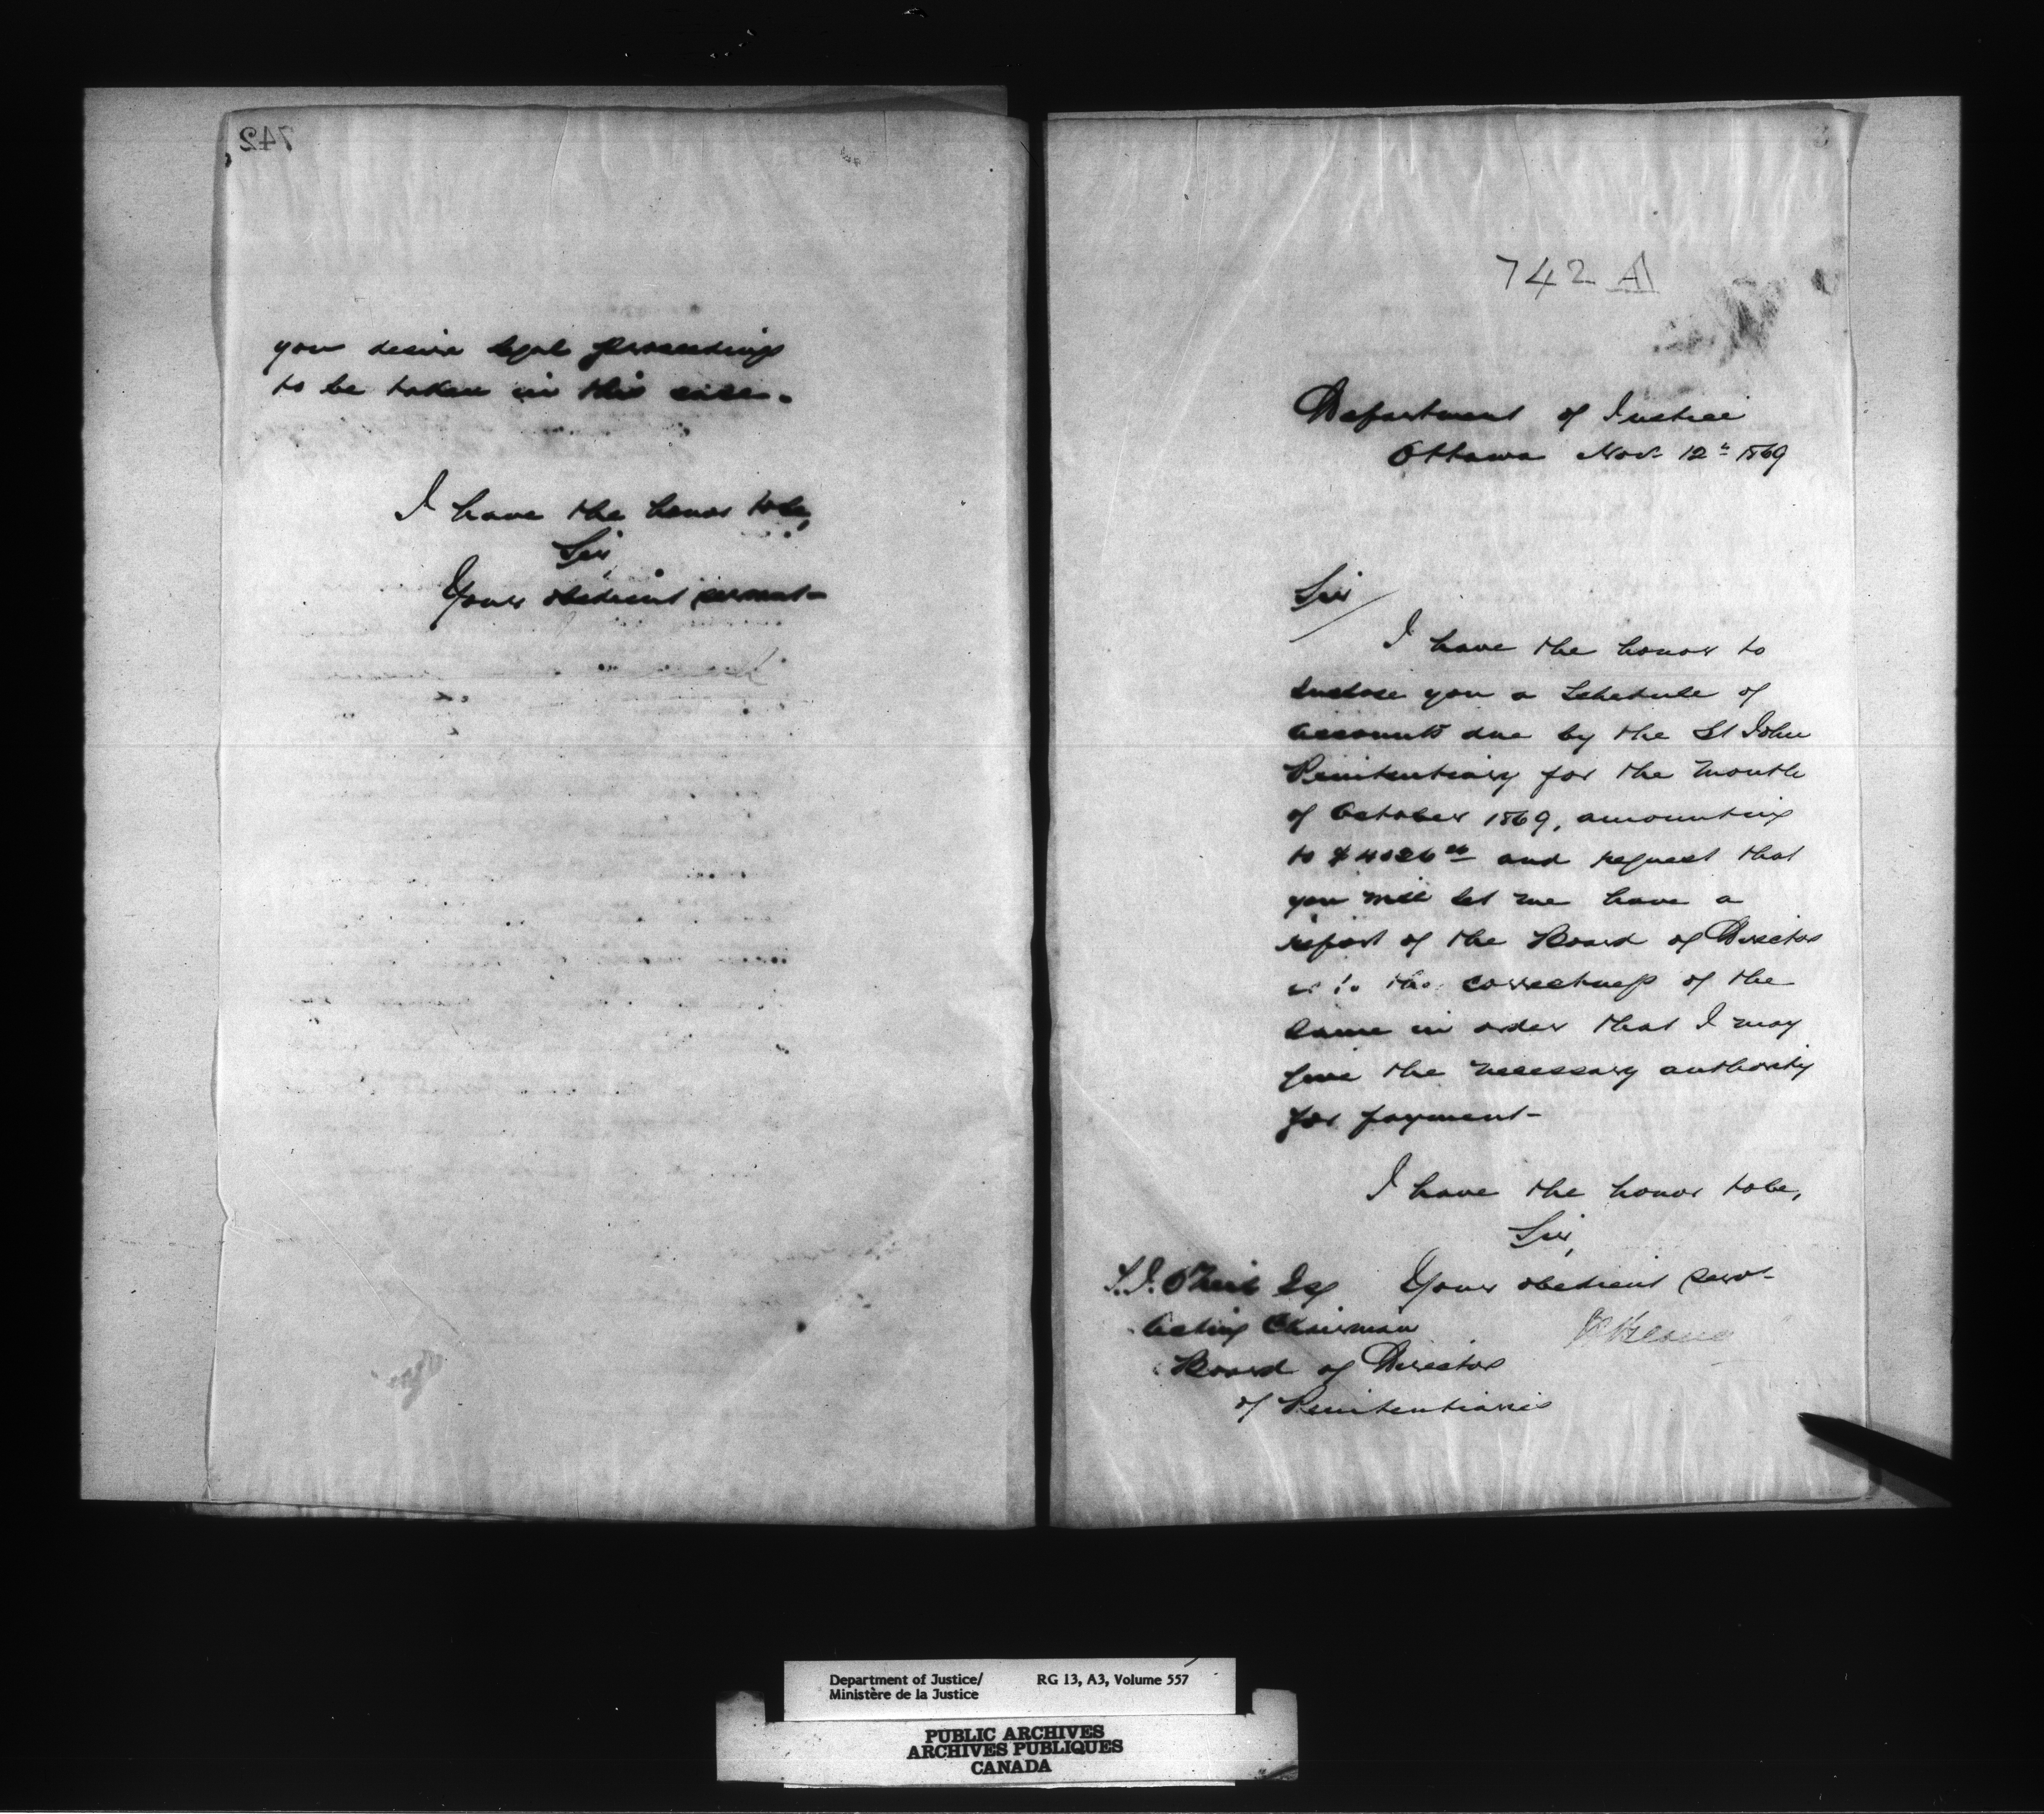 742
you desire legal proceedings
to be taken in this case.
I have the honor to be,
Sir,
Your obedient servant
742 A
Department of Justice
Ottawa Nov. 12th 1869
Sir
I have the honor to
enclose you a Schedule of
accounts due by the St John
Penitentiary for the month
of October 1869, amounting
to $ and request that
you will let me have a
report of the Board of Directors
as to the correctness of the
same in order that I may
give the necessary authority
for payment-
I have the honor to be,
Sir,
Your obedient servt
Esq
Acting Chairman
Board of Directors
of Penitentiaries
Department of Justice/ RG 13, A3, Volume 557
Ministère de la Justice
PUBLIC ARCHIVES
ARCHIVES PUBLIQUES
CANADA